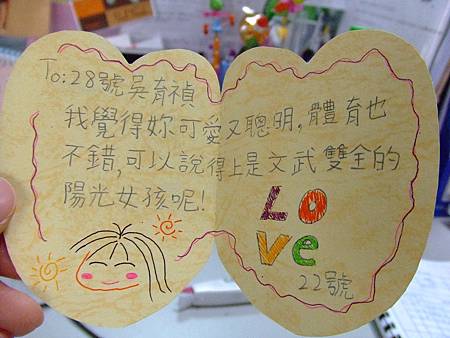 To:28號吳育禎
我覺得妳可愛又聰明,體育也
不錯,可以說得上是文武雙全的
陽光女孩呢!
LO
Ve
22號